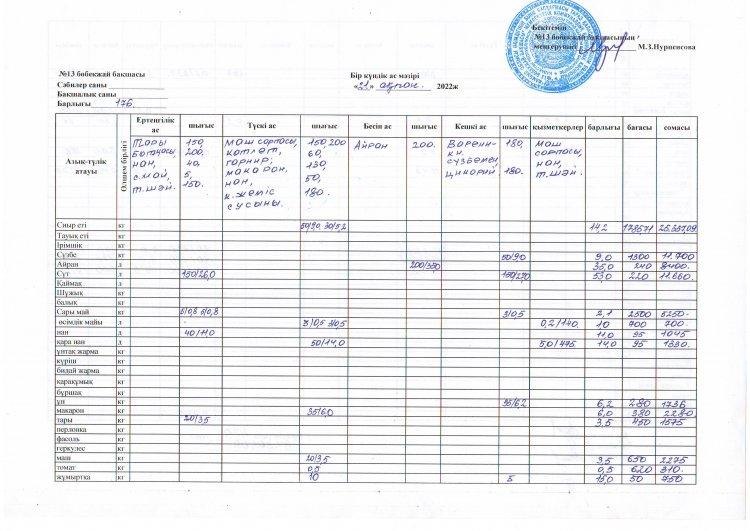 Бекітемін
№13 бөбекжай бақшасының
меңгерушісі М.З.Нурпеисова
№13 бөбекжай бақшасы
Сәбилер саны
Бақшалық саны
Барлығы 176
Бір күндік ас мәзірі
«21» ақпан. 2022ж
Азық-түлік атауы Өлшем бірлігі Ертеңгілік ас шығыс Түскі ас шығыс Бесін ас шығыс Кешкі ас шығыс қызметкерлер барлығы бағасы сомасы
Тары 150, Маш сорпасы, 150,200 Айран 200. Варени- 180, Маш
ботқасы, 200. котлет, 60, ки сорпасы,
нан, 40, гарнир; 130, сүзбемен, нан,
с.май, 5, макарон, 50, цикорий. 180. т.шай.
т.шай. 150. нан, 180.
к.жеміс
сусыны.
Сиыр еті кг 14,2
Тауық еті кг
Ірімшік кг
Сүзбе кг 50/90 9,0 1300 11.700
Айран л 35,0 240 8400.
Сүт л 150/26,0 53,0 220 11.660.
Қаймақ л
Шұжық кг
балық кг
Сары май кг 5/0,8 3/0,5 2,1 2500 5250-
өсімдік майы л 3/0,5 3/0,5 0,2/140. 10 700 700.
нан л 40/11,0 11,0 95 1045
қара нан кг 50/14,0 5,0/475 14,0 95 1330.
ұнтақ жарма кг
күріш кг
бидай жарма кг
қарақұмық кг
бұршақ кг
ұн кг 35/6,2 6,2 280 1736
макарон кг 35/6,0 6,0 380 2280
тары кг 20/3,5 3,5 450 1575
перловка кг
фасоль кг
геркулес кг
маш кг 20/3,5 3,5 650 2275
томат кг 0,5 0,5 620 310.
жұмыртқа кг 10 5 15,0 50 750